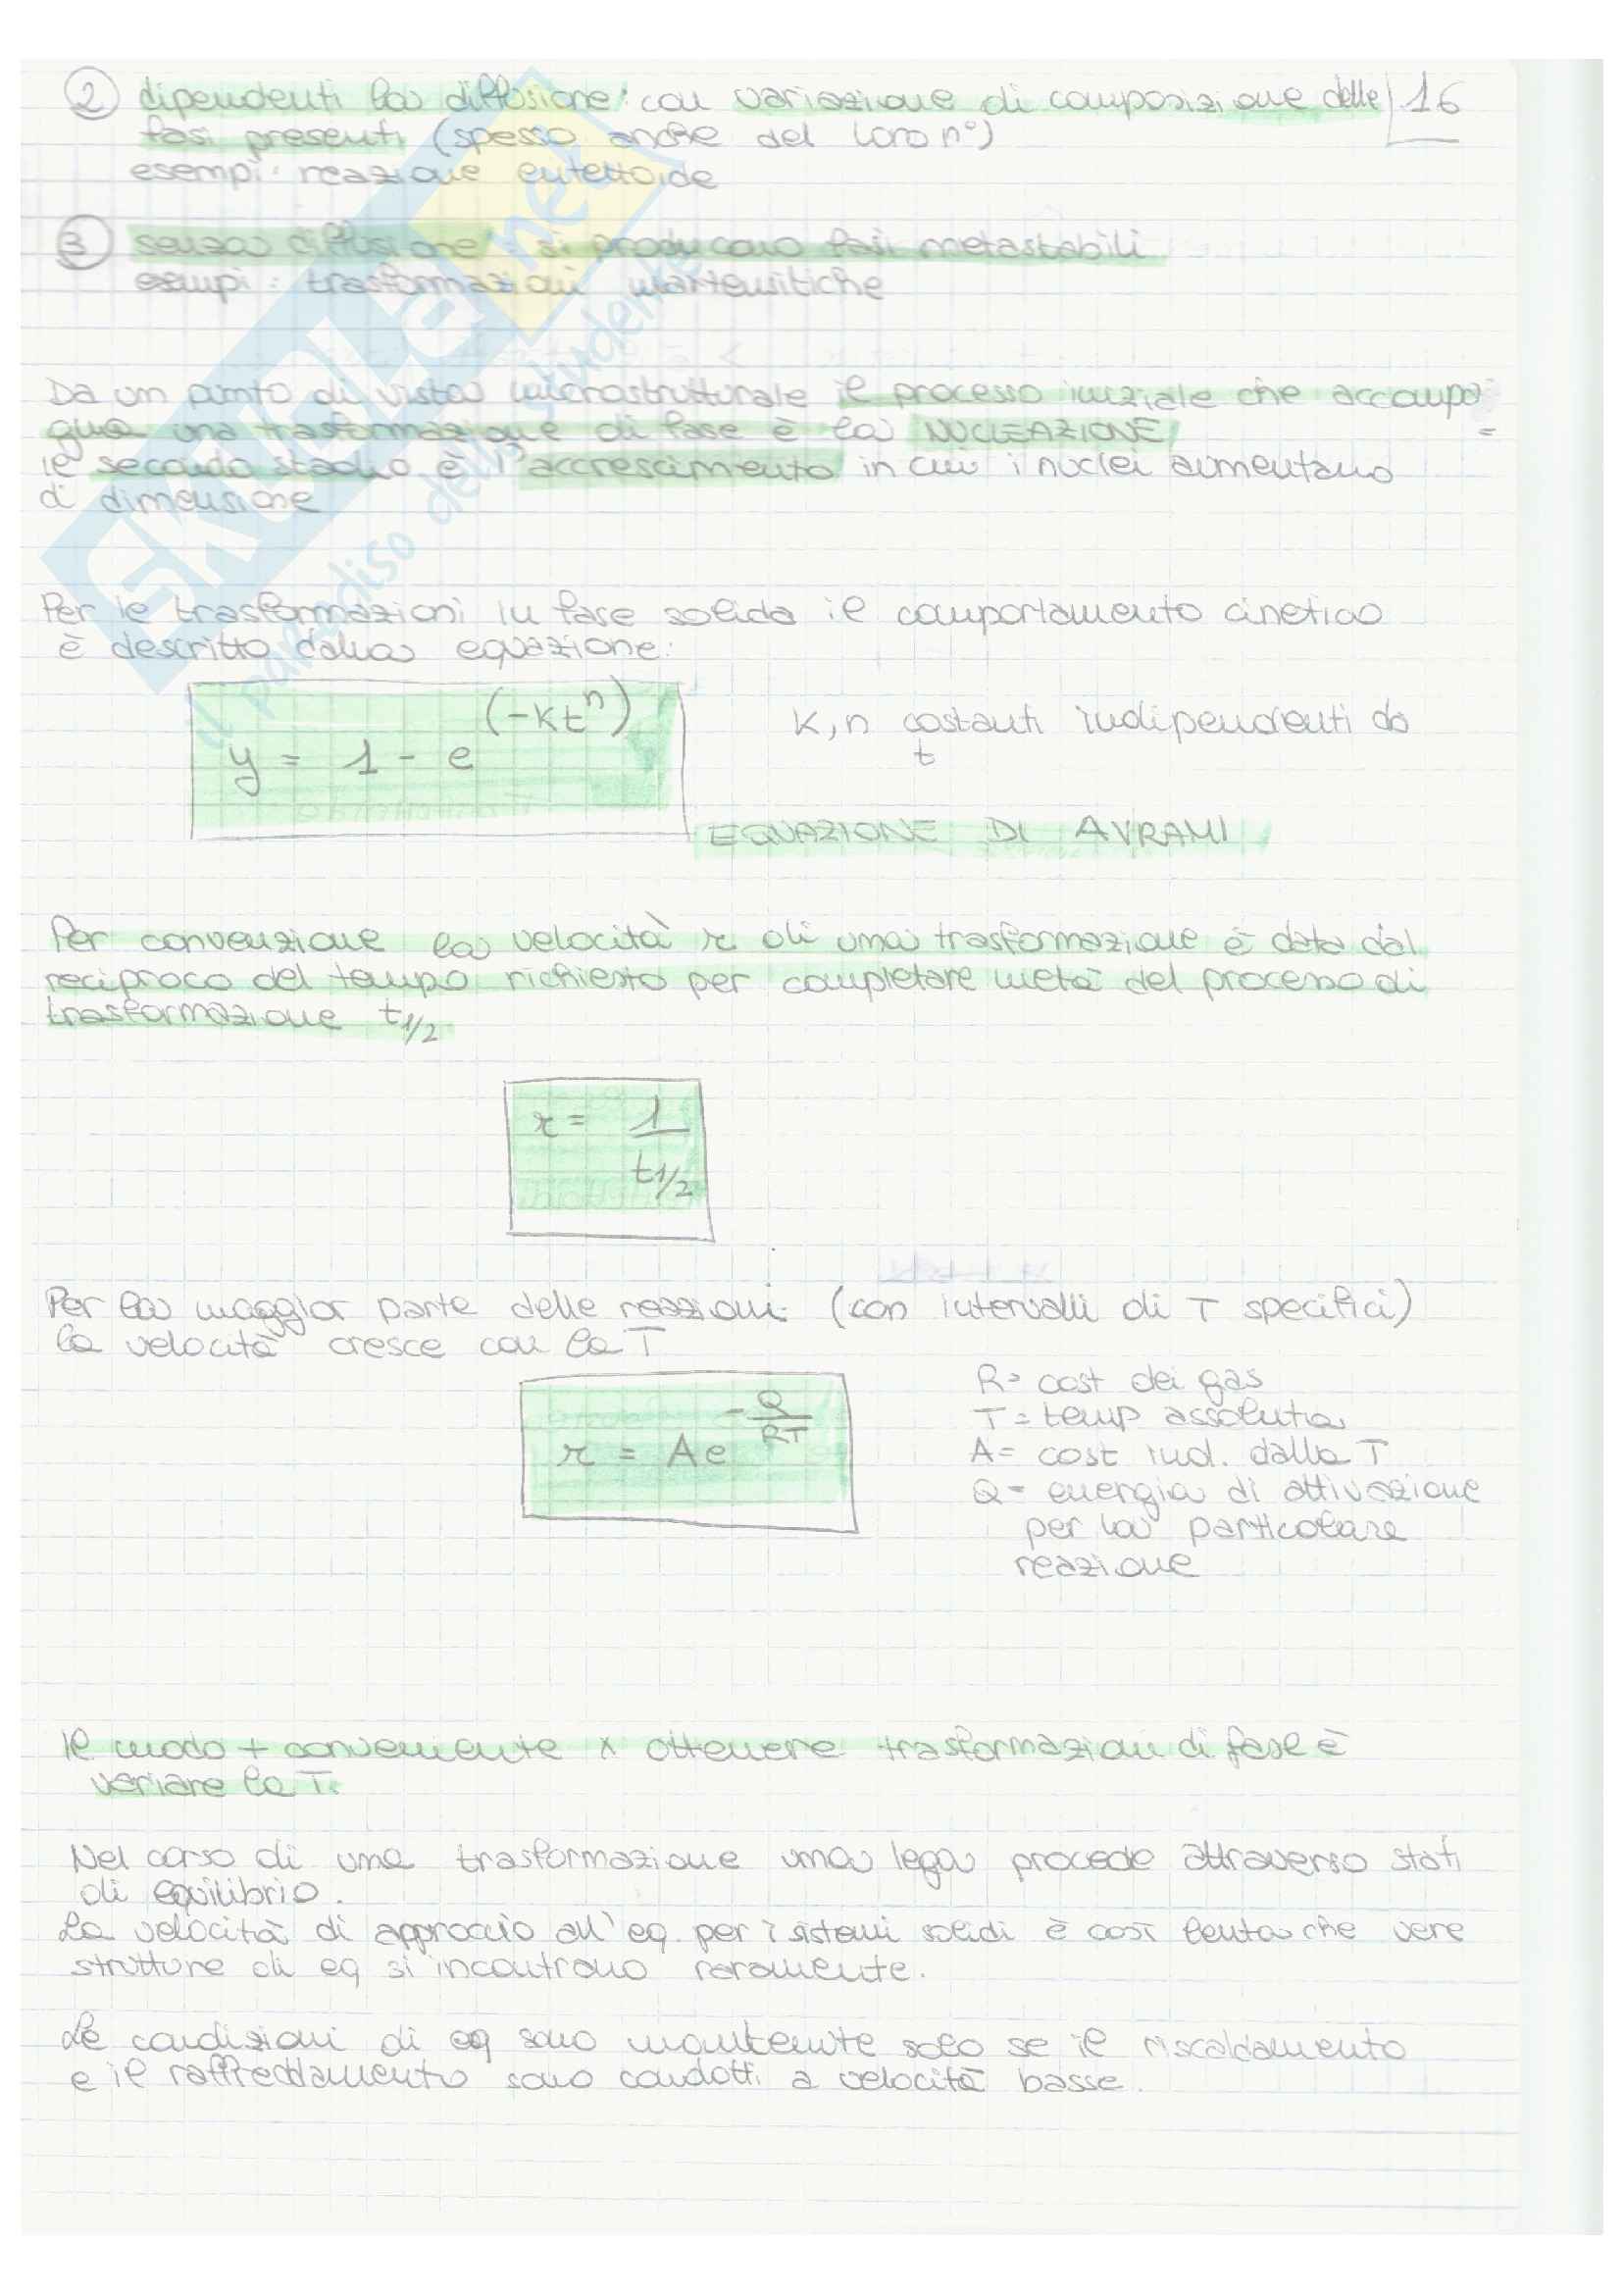 ② dipendenti la diffusione: con variazione di composizione delle 16
fasi presenti (spesso anche del loro n°)
esempi: reazione eutettoide
③ senza diffusione: si producono fasi metastabili
esempi: trasformazioni martensitiche
Da un punto di vista microstrutturale il processo iniziale che accompa=
gna una trasformazione di fase è la NUCLEAZIONE
il secondo stadio è l'accrescimento in cui i nuclei aumentano
di dimensione
Per le trasformazioni in fase solida il comportamento cinetico
è descritto dalla equazione:
y = 1 - e^(-kt^n)
K, n costanti indipendenti da
t
EQUAZIONE DI AVRAMI
Per convenzione la velocità r di una trasformazione è data dal
reciproco del tempo richiesto per completare metà del processo di
trasformazione t1/2
r = 1/t1/2
Per la maggior parte delle reazioni (con intervalli di T specifici)
la velocità cresce con la T
r = Ae^-Q/RT
R= cost dei gas
T = temp assoluta
A= cost ind. dalla T
Q= energia di attivazione
per la particolare
reazione
Il modo + conveniente x ottenere trasformazioni di fase è
variare la T.
Nel corso di una trasformazione una lega procede attraverso stati
di equilibrio.
La velocità di approccio all'eq. per i sistemi solidi è così lenta che vere
strutture di eq si incontrano raramente.
Le condizioni di eq sono mantenute solo se il riscaldamento
e il raffreddamento sono condotti a velocità basse.
SKUOLA.net
il paradiso dello studente